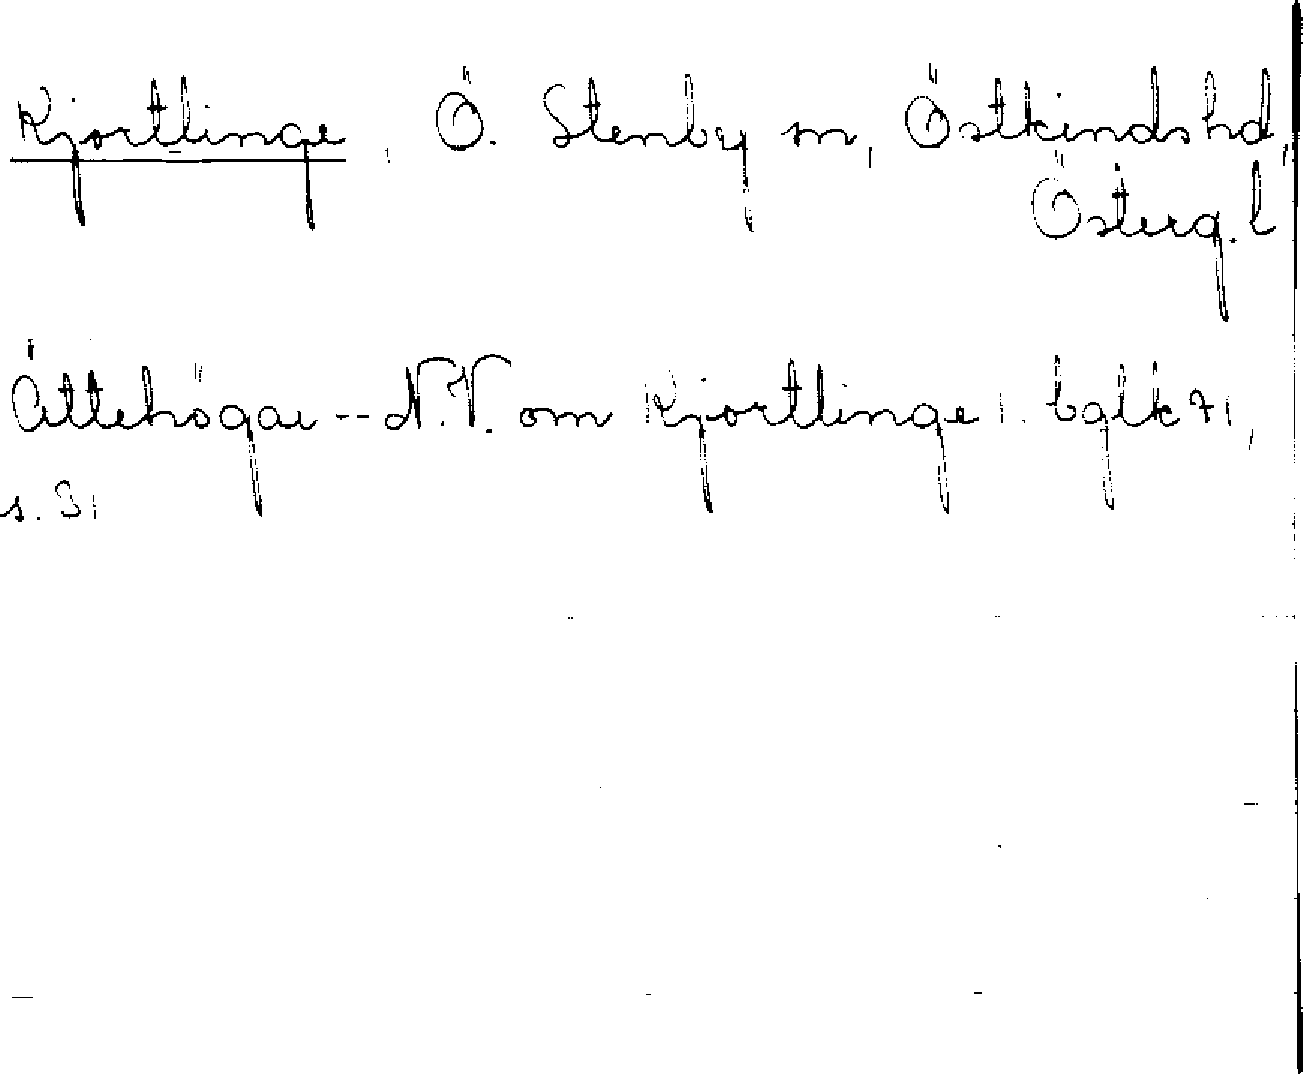 Kjortlinge, Ö. Stenby sn, Östkinds hd,
Österg. l
Ättehögar -- N.V. om Kjortlinge I. bglk 71,
s. 31